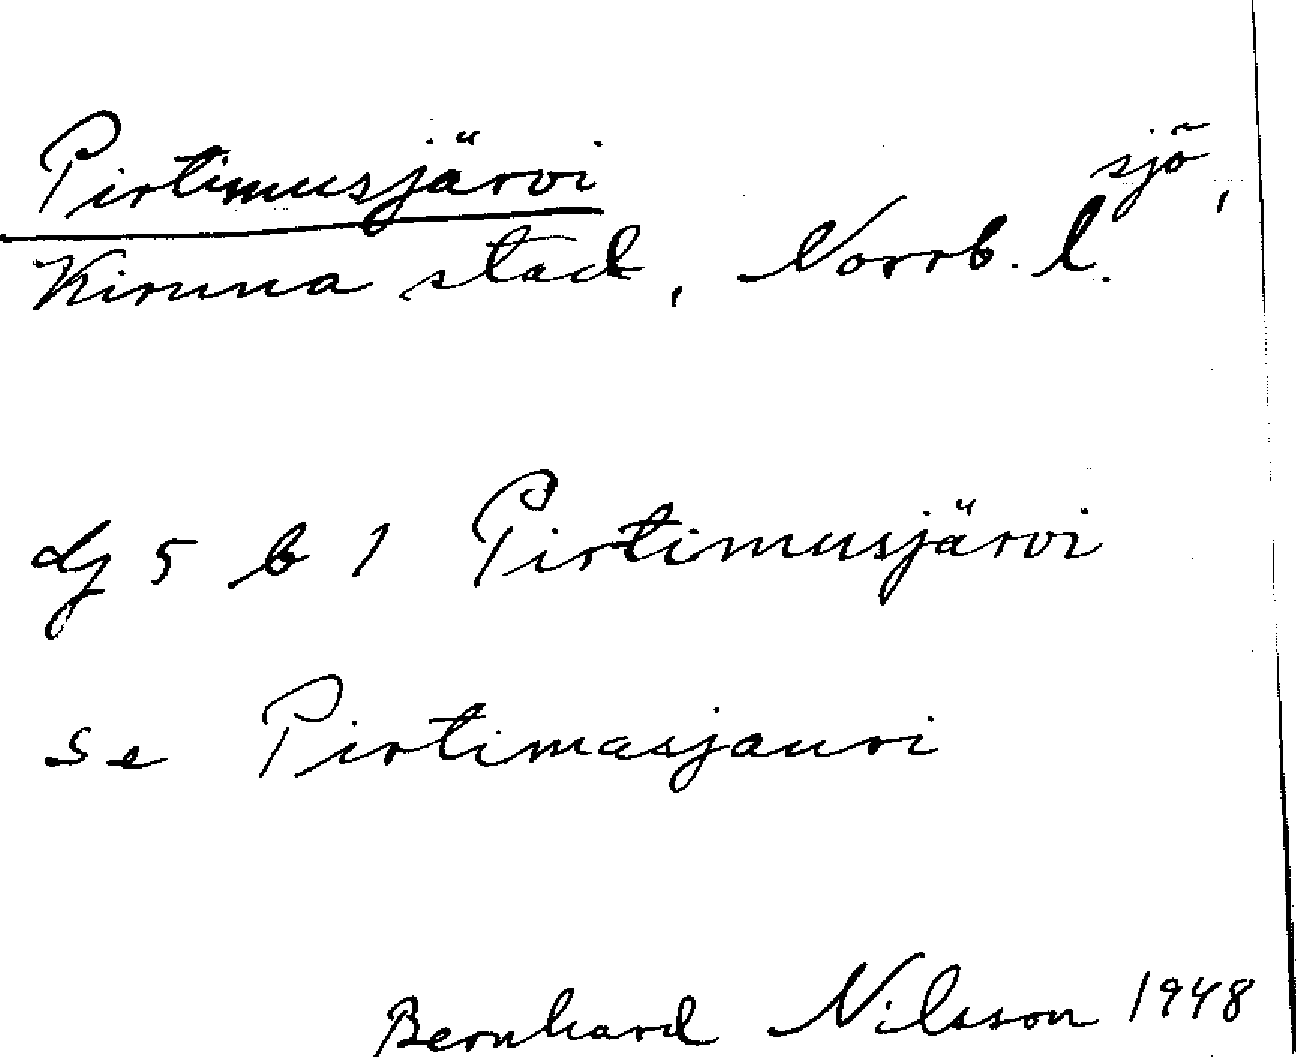 Pirtimusjärvi sjö,
Kiruna stad, Norrb. l.
dg 5 b 1 Pirtimusjärvi
se Pirtimasjauri
Bernhard Nilsson 1948